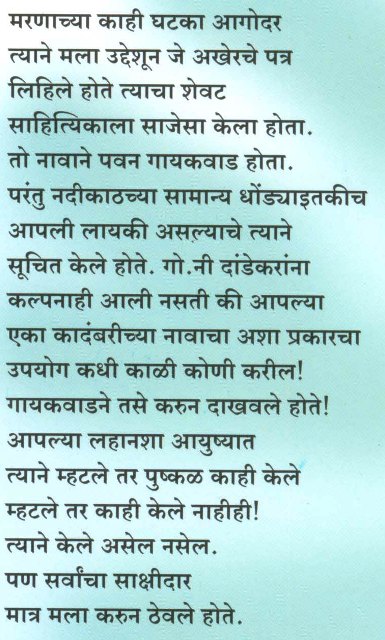 मरणाच्या काही घटका आगोदर
त्याने मला उद्देशून जे अखेरचे पत्र
लिहिले होते त्याचा शेवट
साहित्यिकाला साजेसा केला होता.
तो नावाने पवन गायकवाड होता.
परंतु नदीकाठच्या सामान्य धोंड्याइतकीच
आपली लायकी असल्याचे त्याने
सूचित केले होते. गो.नी दांडेकरांना
कल्पनाही आली नसती की आपल्या
एका कादंबरीच्या नावाचा अशा प्रकारचा
उपयोग कधी काळी कोणी करील!
गायकवाडने तसे करुन दाखवले होते!
आपल्या लहानशा आयुष्यात
त्याने म्हटले तर पुष्कळ काही केले
म्हटले तर काही केले नाहीही!
त्याने केले असेल नसेल.
पण सर्वांचा साक्षीदार
मात्र मला करुन ठेवले होते.